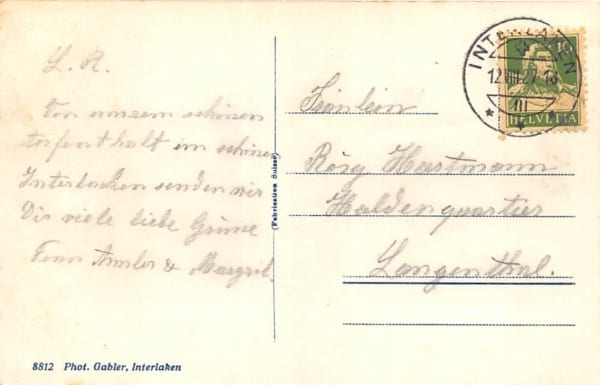 L. R.
Von unsrem schönen
Aufenthalt im schönen
Interlaken senden wir
Dir viele liebe Grüsse
& Margrit.
(Fabrication Suisse)
8812 Phot. Gabler, Interlaken
INTERLAKEN
12.VIII.27-18
10
HELVETIA
Fräulein
Rösy Hartmann
Haldenquartier
Langenthal.